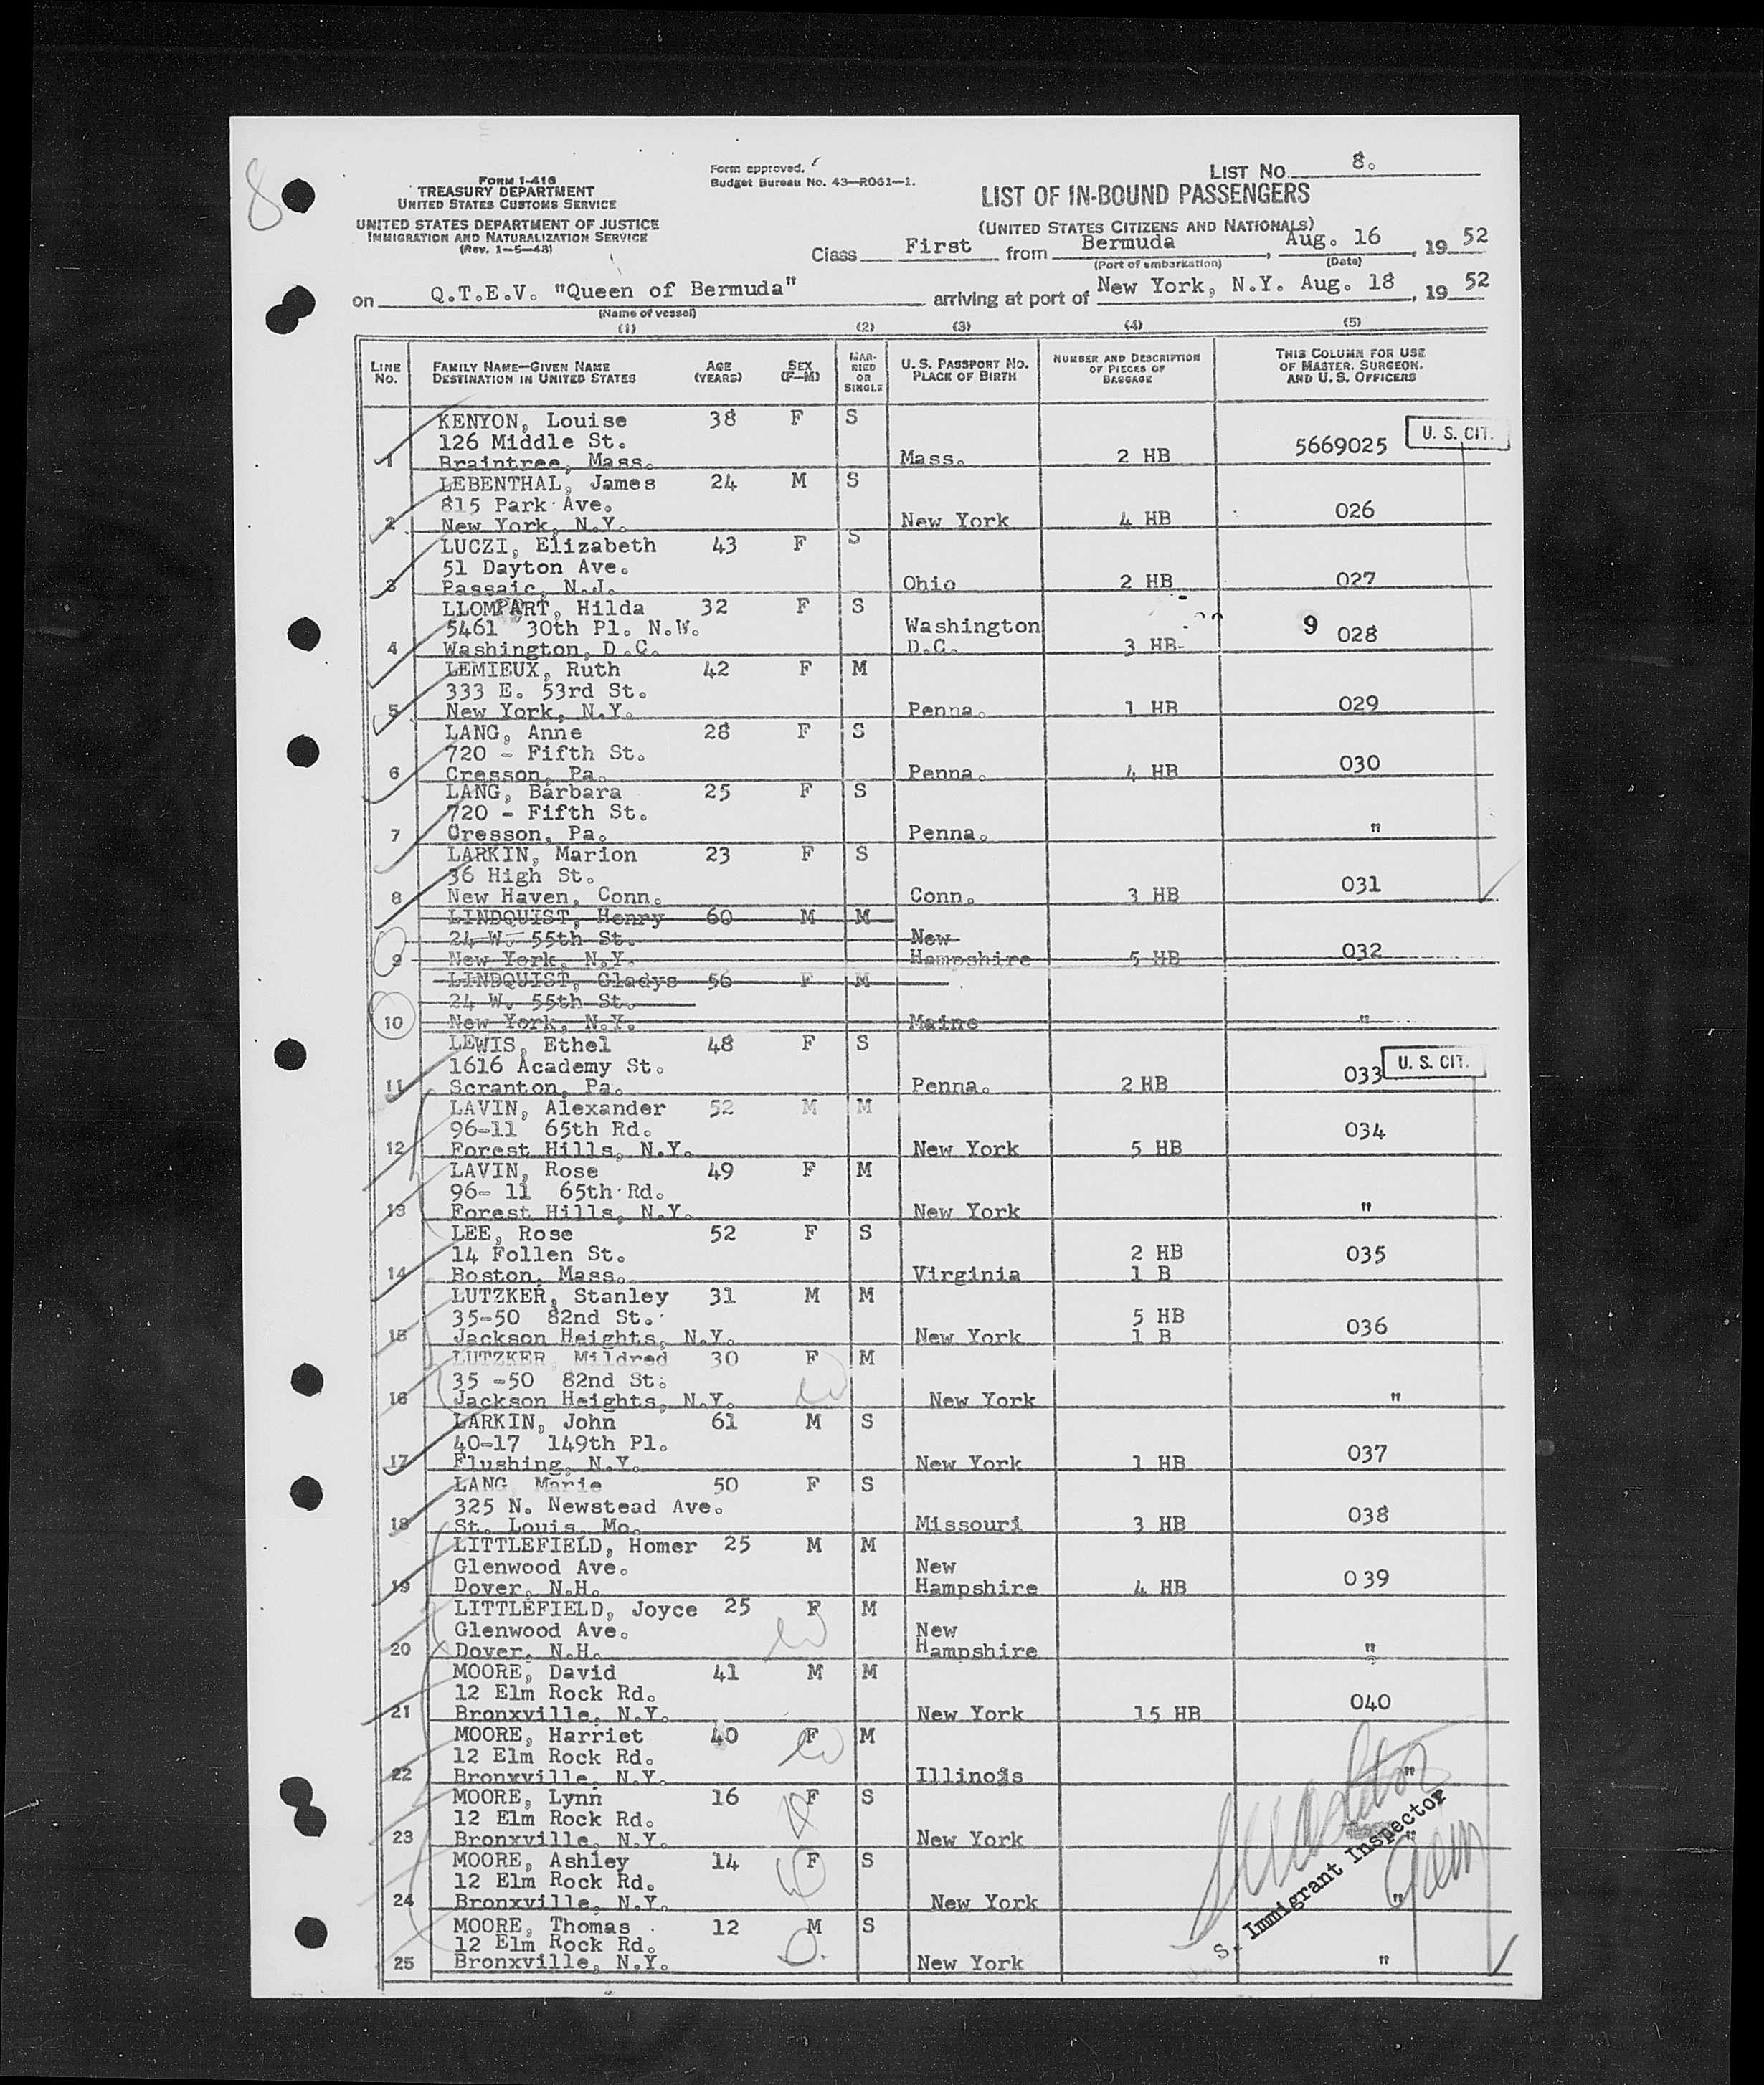 8
FORM I-416
TREASURY DEPARTMENT
UNITED STATES CUSTOMS SERVICE
UNITED STATES DEPARTMENT OF JUSTICE
IMMIGRATION AND NATURALIZATION SERVICE
(Rev. 1-5-48)
Form approved.
Budget Bureau No. 43-R061-1.
LIST NO. 8.
LIST OF IN-BOUND PASSENGERS
(UNITED STATES CITIZENS AND NATIONALS)
Class First from Bermuda, Aug. 16, 19 52
(Port of embarkation) (Date)
on Q.T.E.V. "Queen of Bermuda" arriving at port of New York, N.Y. Aug. 18, 19 52
(Name of vessel)
(1) (2) (3) (4) (5)
LINE No. FAMILY NAME—GIVEN NAME DESTINATION IN UNITED STATES AGE (YEARS) SEX (F—M) MARRIED OR SINGLE U. S. PASSPORT NO. PLACE OF BIRTH NUMBER AND DESCRIPTION OF PIECES OF BAGGAGE THIS COLUMN FOR USE OF MASTER, SURGEON, AND U. S. OFFICERS
KENYON, Louise 38 F S
126 Middle St. 5669025 U. S. CIT.
1 Braintree, Mass. Mass. 2 HB
LEBENTHAL, James 24 M S
815 Park Ave. 026
2 New York, N.Y. New York 4 HB
LUCZI, Elizabeth 43 F S
51 Dayton Ave.
3 Passaic, N.J. Ohio 2 HB 027
LLOMPART, Hilda 32 F S
5461 30th Pl. N.W. Washington 9 028
4 Washington, D.C. D.C. 3 HB
LEMIEUX, Ruth 42 F M
333 E. 53rd St. 029
5 New York, N.Y. Penna. 1 HB
LANG, Anne 28 F S
720 - Fifth St. 030
6 Cresson, Pa. Penna. 4 HB
LANG, Barbara 25 F S
720 - Fifth St.
7 Cresson, Pa. Penna. "
LARKIN, Marion 23 F S
36 High St. 031
8 New Haven, Conn. Conn. 3 HB
LINDQUIST, Henry 60 M M
24 W. 55th St. New
9 New York, N.Y. Hampshire 5 HB 032
LINDQUIST, Gladys 56 F M
24 W. 55th St.
10 New York, N.Y. Maine "
LEWIS, Ethel 48 F S
1616 Academy St. 033 U. S. CIT.
11 Scranton, Pa. Penna. 2 HB
LAVIN, Alexander 52 M M
96-11 65th Rd. 034
12 Forest Hills, N.Y. New York 5 HB
LAVIN, Rose 49 F M
96- 11 65th Rd.
13 Forest Hills, N.Y. New York "
LEE, Rose 52 F S
14 Follen St. 2 HB 035
14 Boston, Mass. Virginia 1 B
LUTZKER, Stanley 31 M M
35-50 82nd St. 5 HB 036
15 Jackson Heights, N.Y. New York 1 B
LUTZKER, Mildred 30 F M
35 -50 82nd St.
16 Jackson Heights, N.Y. New York "
LARKIN, John 61 M S
40-17 149th Pl. 037
17 Flushing, N.Y. New York 1 HB
LANG, Marie 50 F S
325 N. Newstead Ave. 038
18 St. Louis, Mo. Missouri 3 HB
LITTLEFIELD, Homer 25 M M
Glenwood Ave. New 039
19 Dover, N.H. Hampshire 4 HB
LITTLEFIELD, Joyce 25 F M
Glenwood Ave. New
20 Dover, N.H. Hampshire "
MOORE, David 41 M M
12 Elm Rock Rd. 040
21 Bronxville, N.Y. New York 15 HB
MOORE, Harriet 40 F M
12 Elm Rock Rd.
22 Bronxville, N.Y. Illinois "
MOORE, Lynn 16 F S
12 Elm Rock Rd.
23 Bronxville, N.Y. New York "
MOORE, Ashley 14 F S
12 Elm Rock Rd.
24 Bronxville, N.Y. New York "
MOORE, Thomas 12 M S
12 Elm Rock Rd.
25 Bronxville, N.Y. New York "
S. Immigrant Inspector